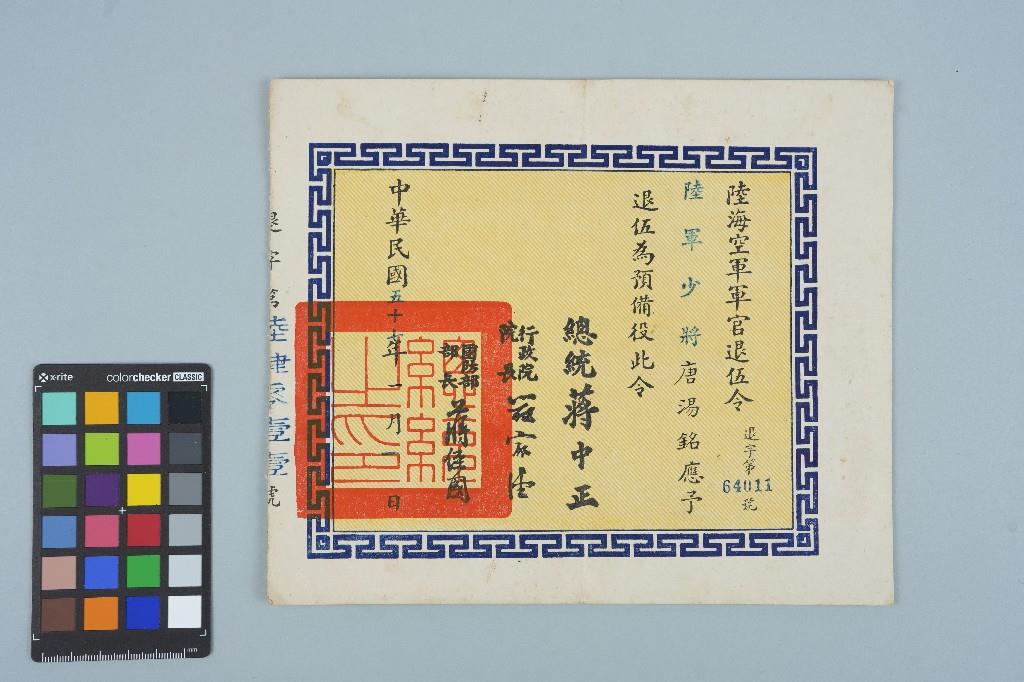 陸海空軍軍官退伍令
退字第64011號
陸軍少將唐湯銘應予
退伍為預備役此令
總統蔣中正
行政院院長嚴家淦
國防部部長蔣經國
中華民國五十七年一月一日
退字第陸肆零壹壹號
總統之印
x-rite colorchecker CLASSIC
mm